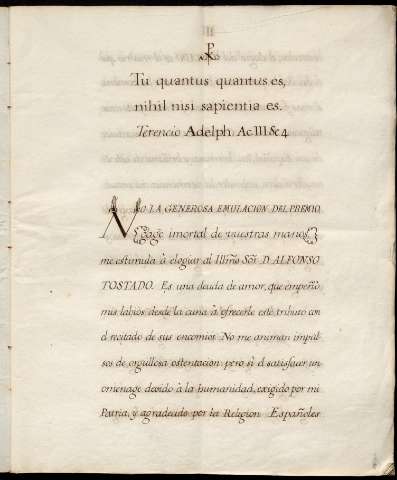 Tu quantus quantus es,
nihil nisi sapientia es.
Terencio Adelph Ac III Sc 4
NO LA GENEROSA EMULACION DEL PREMIO
gage imortal de nuestras manos
me estimula à elogiar al Illmo Sor D. ALFONSO
TOSTADO. Es una deuda de amor, que empeñò
mis labios desde la cuna à ofrecerle este tributo con
el recitado de sus encomios No me animan impul-
sos de orgullosa ostentacion: pero sì el satisfacer un
omenage devido à la humanidad, exigido por mi
Patria, y agradecido por la Religion Españoles